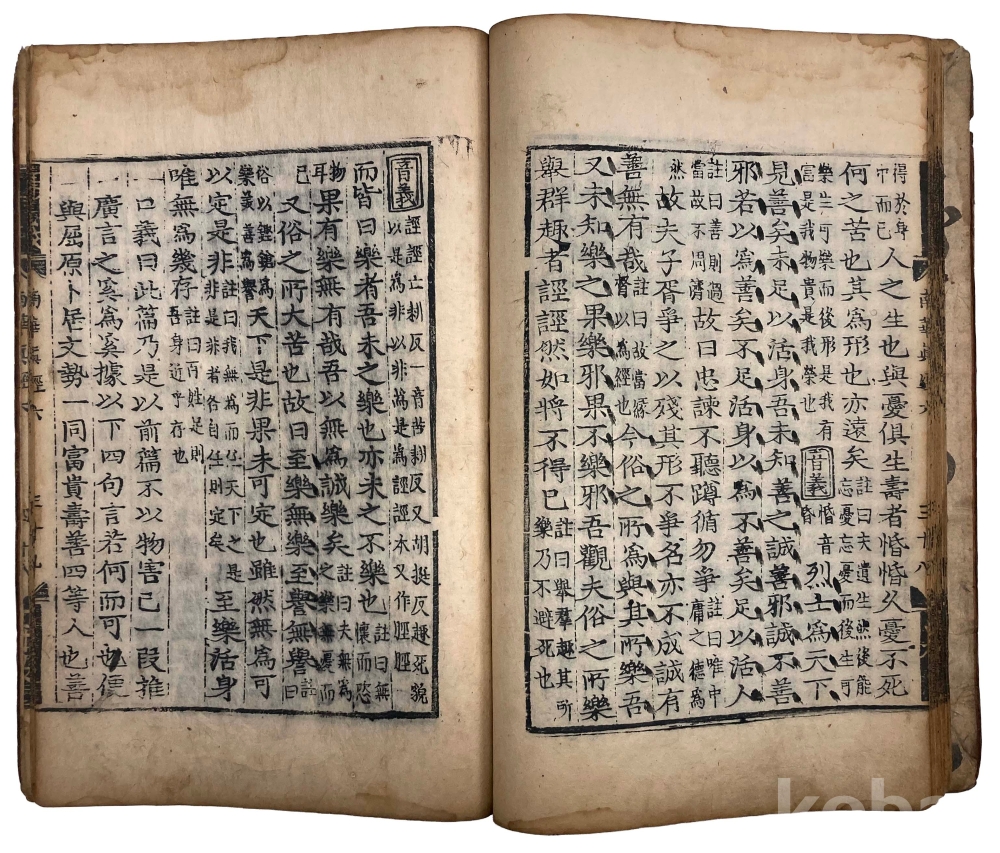 得於身中而已人之生也與憂俱生壽者惛惛久憂不死
何之苦也其爲形也亦遠矣註曰夫遺生然後能忘憂忘憂而後生可
樂生可樂而後形是我有富是我物貴是我榮也音義惛音昏烈士爲天下
見善矣未足以活身吾未知善之誠善邪誠不善
邪若以爲善矣不足活身以爲不善矣足以活人
註曰善則過當故不周濟故曰忠諫不聽蹲循勿爭註曰唯中庸之德爲
然故夫子胥爭之以殘其形不爭名亦不成誠有
善無有哉註曰故當緣督以爲經也今俗之所爲與其所樂吾
又未知樂之果樂邪果不樂邪吾觀夫俗之所樂
舉群趣者誙誙然如將不得已註曰舉羣趣其所樂乃不避死也
音義誙誙反一音反又胡挺反趣死貌以是爲非以非爲是爲誙誙本又作脛脛
而皆曰樂者吾未之樂也亦未之不樂也註曰無懷而恣
物耳果有樂無有哉吾以無爲誠樂矣註曰夫無爲之樂無憂而
已又俗之所大苦也故曰至樂無樂至譽無譽註曰
俗以鏗鎗爲樂美善爲譽天下是非果未可定也雖然無爲可
以定是非註曰我無爲而任天下之是非是非者各自任則定矣至樂活身
唯無爲幾存註曰百姓足則吾身近乎存也
一口義曰此篇乃是以前篇不以物害己一段推
廣言之奚爲奚據以下四句言若何而可也便
與屈原卜居文勢一同富貴壽善四等人也善
南華眞經六